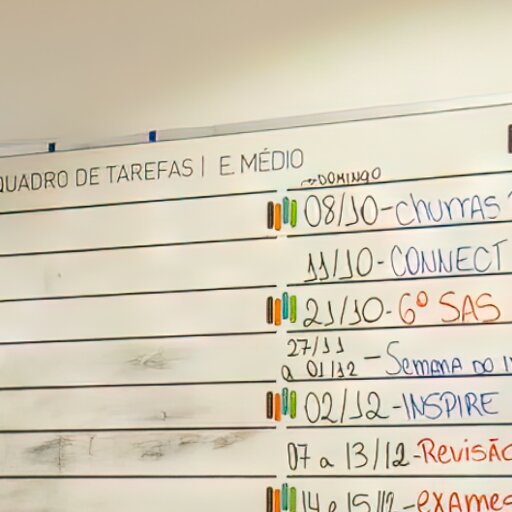 QUADRO DE TAREFAS | E. MÉDIO
DOMINGO
08/10-churras
11/10-CONNECT
21/10-6º SAS
27/11
a 01/12 - Semana do
02/12-INSPIRE
07 a 13/12-Revisão
14 e 15/12-exames